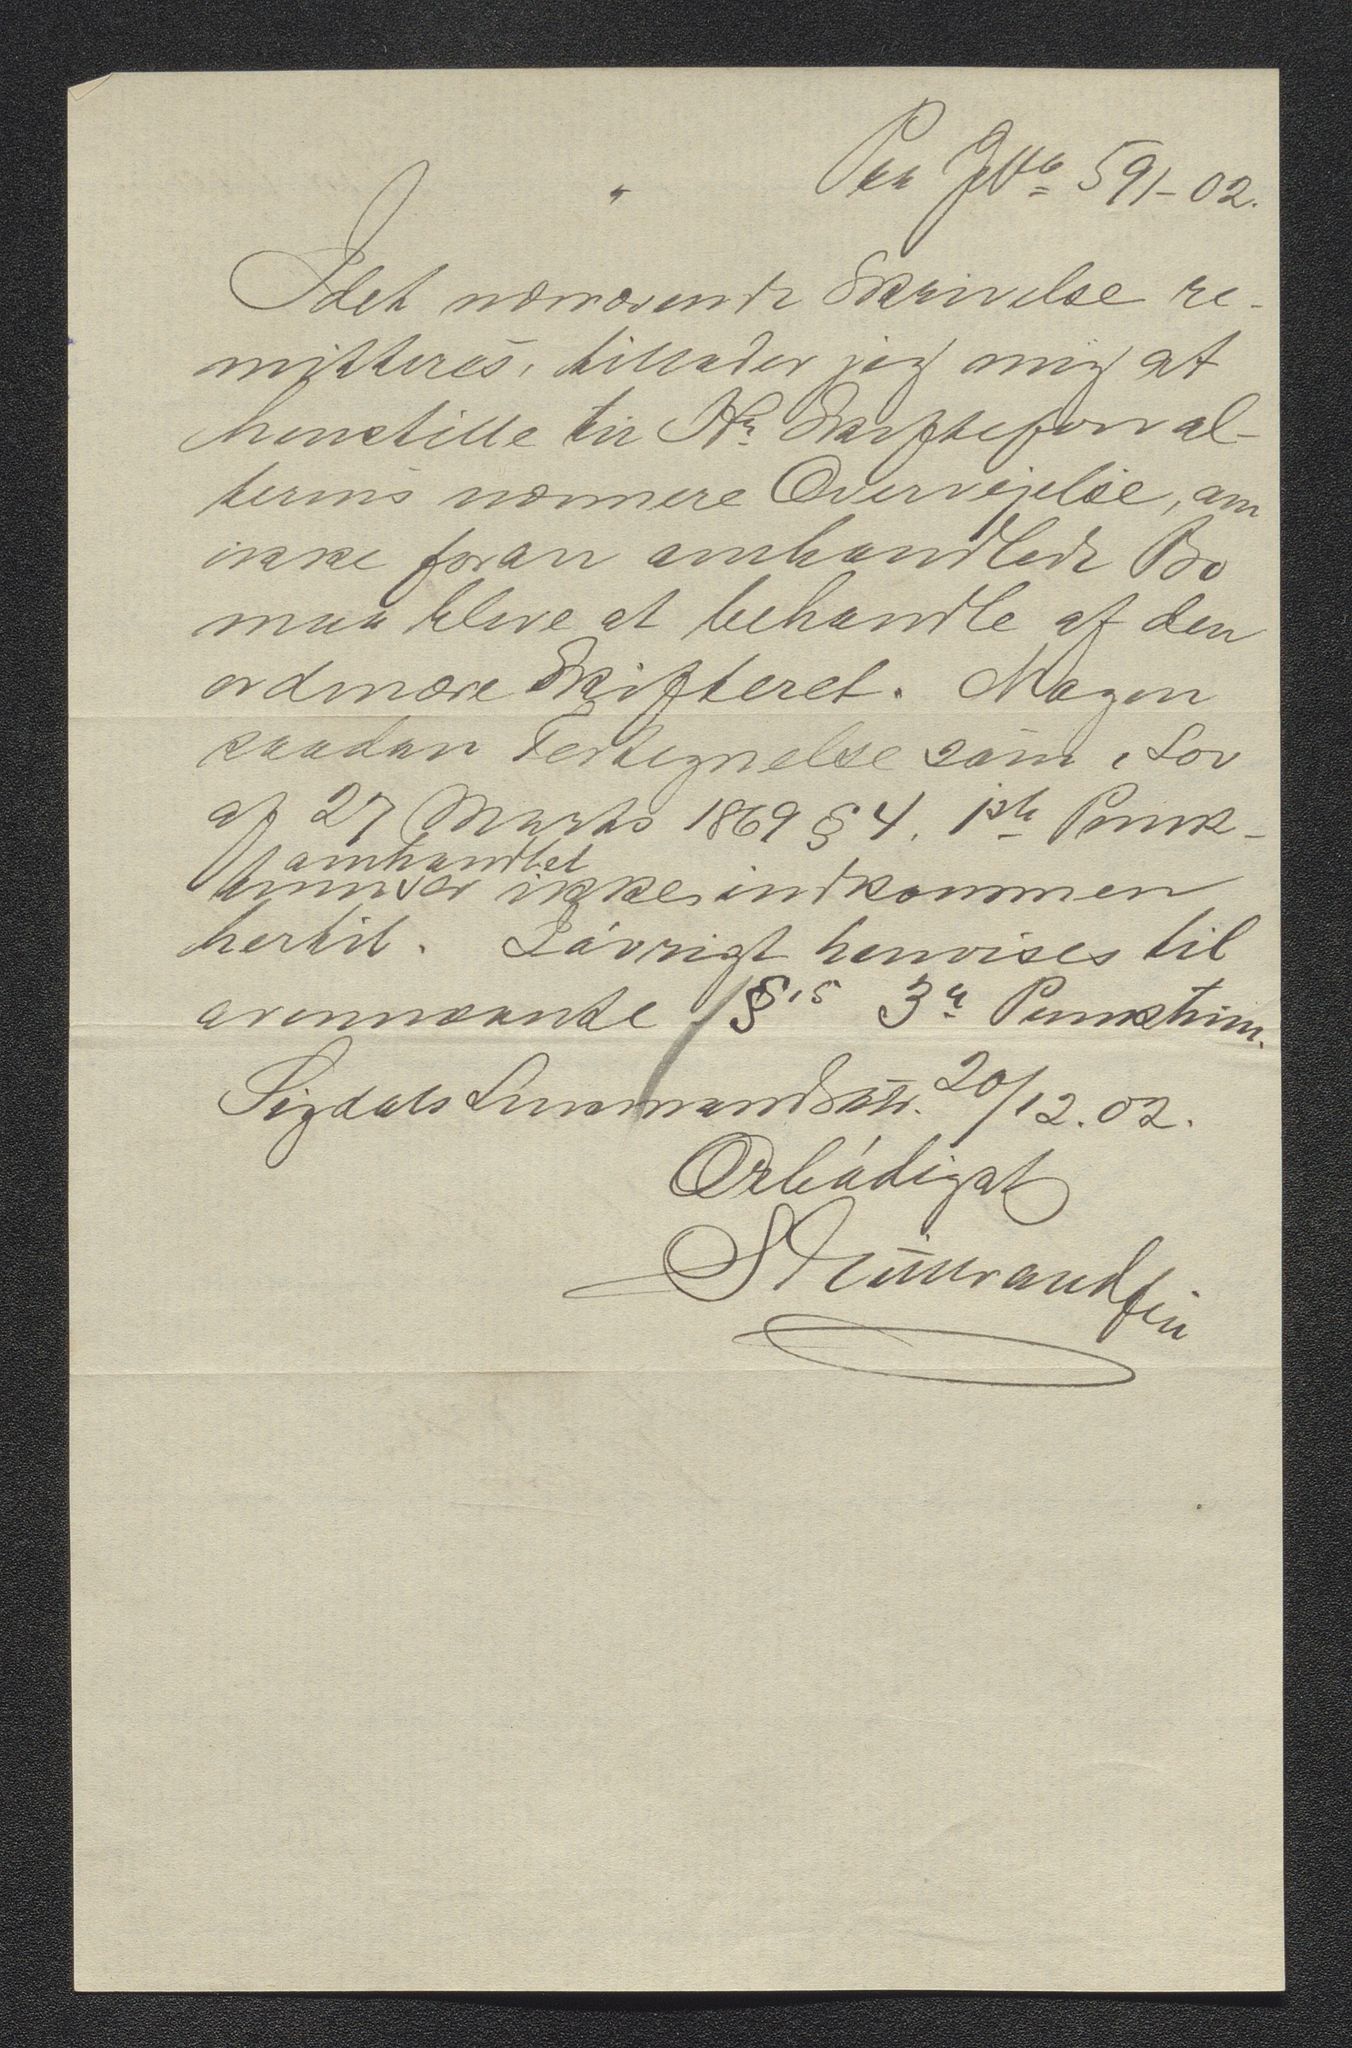 Paa JNo 591-02.
Idet nærværende Skrivelse re-
mitteres, tillader jeg mig at
henstille til Hr. Skifteforval-
terens nærmere Overveielse, om
ikke foran omhandlede Bo
maa blive at behandle af den
ordinære Skifteret. Nogen
saadan Fortegnelse som i Lov
af 27 Marts 1869 § 4, 1ste Punk-
omhandlet
tum er ikke indkommen
hertil. Iøvrigt henvises til
ovennævnte §'s 3die Punktum.
Sigdals Lensmandsktr. 20/12.02.
Ærbødigst